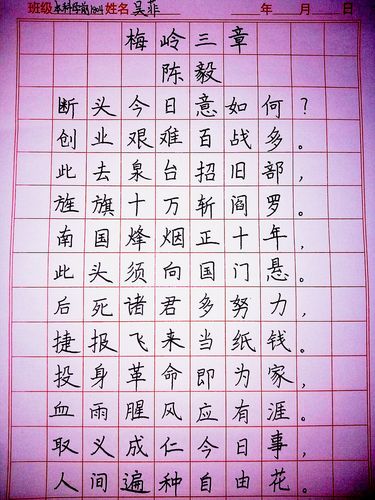 班级 本科学前1804 姓名 吴菲 年 月 日
梅岭三章
陈毅
断头今日意如何?
创业艰难百战多。
此去泉台招旧部,
旌旗十万斩阎罗。
南国烽烟正十年,
此头须向国门悬。
后死诸君多努力,
捷报飞来当纸钱。
投身革命即为家,
血雨腥风应有涯。
取义成仁今日事,
人间遍种自由花。